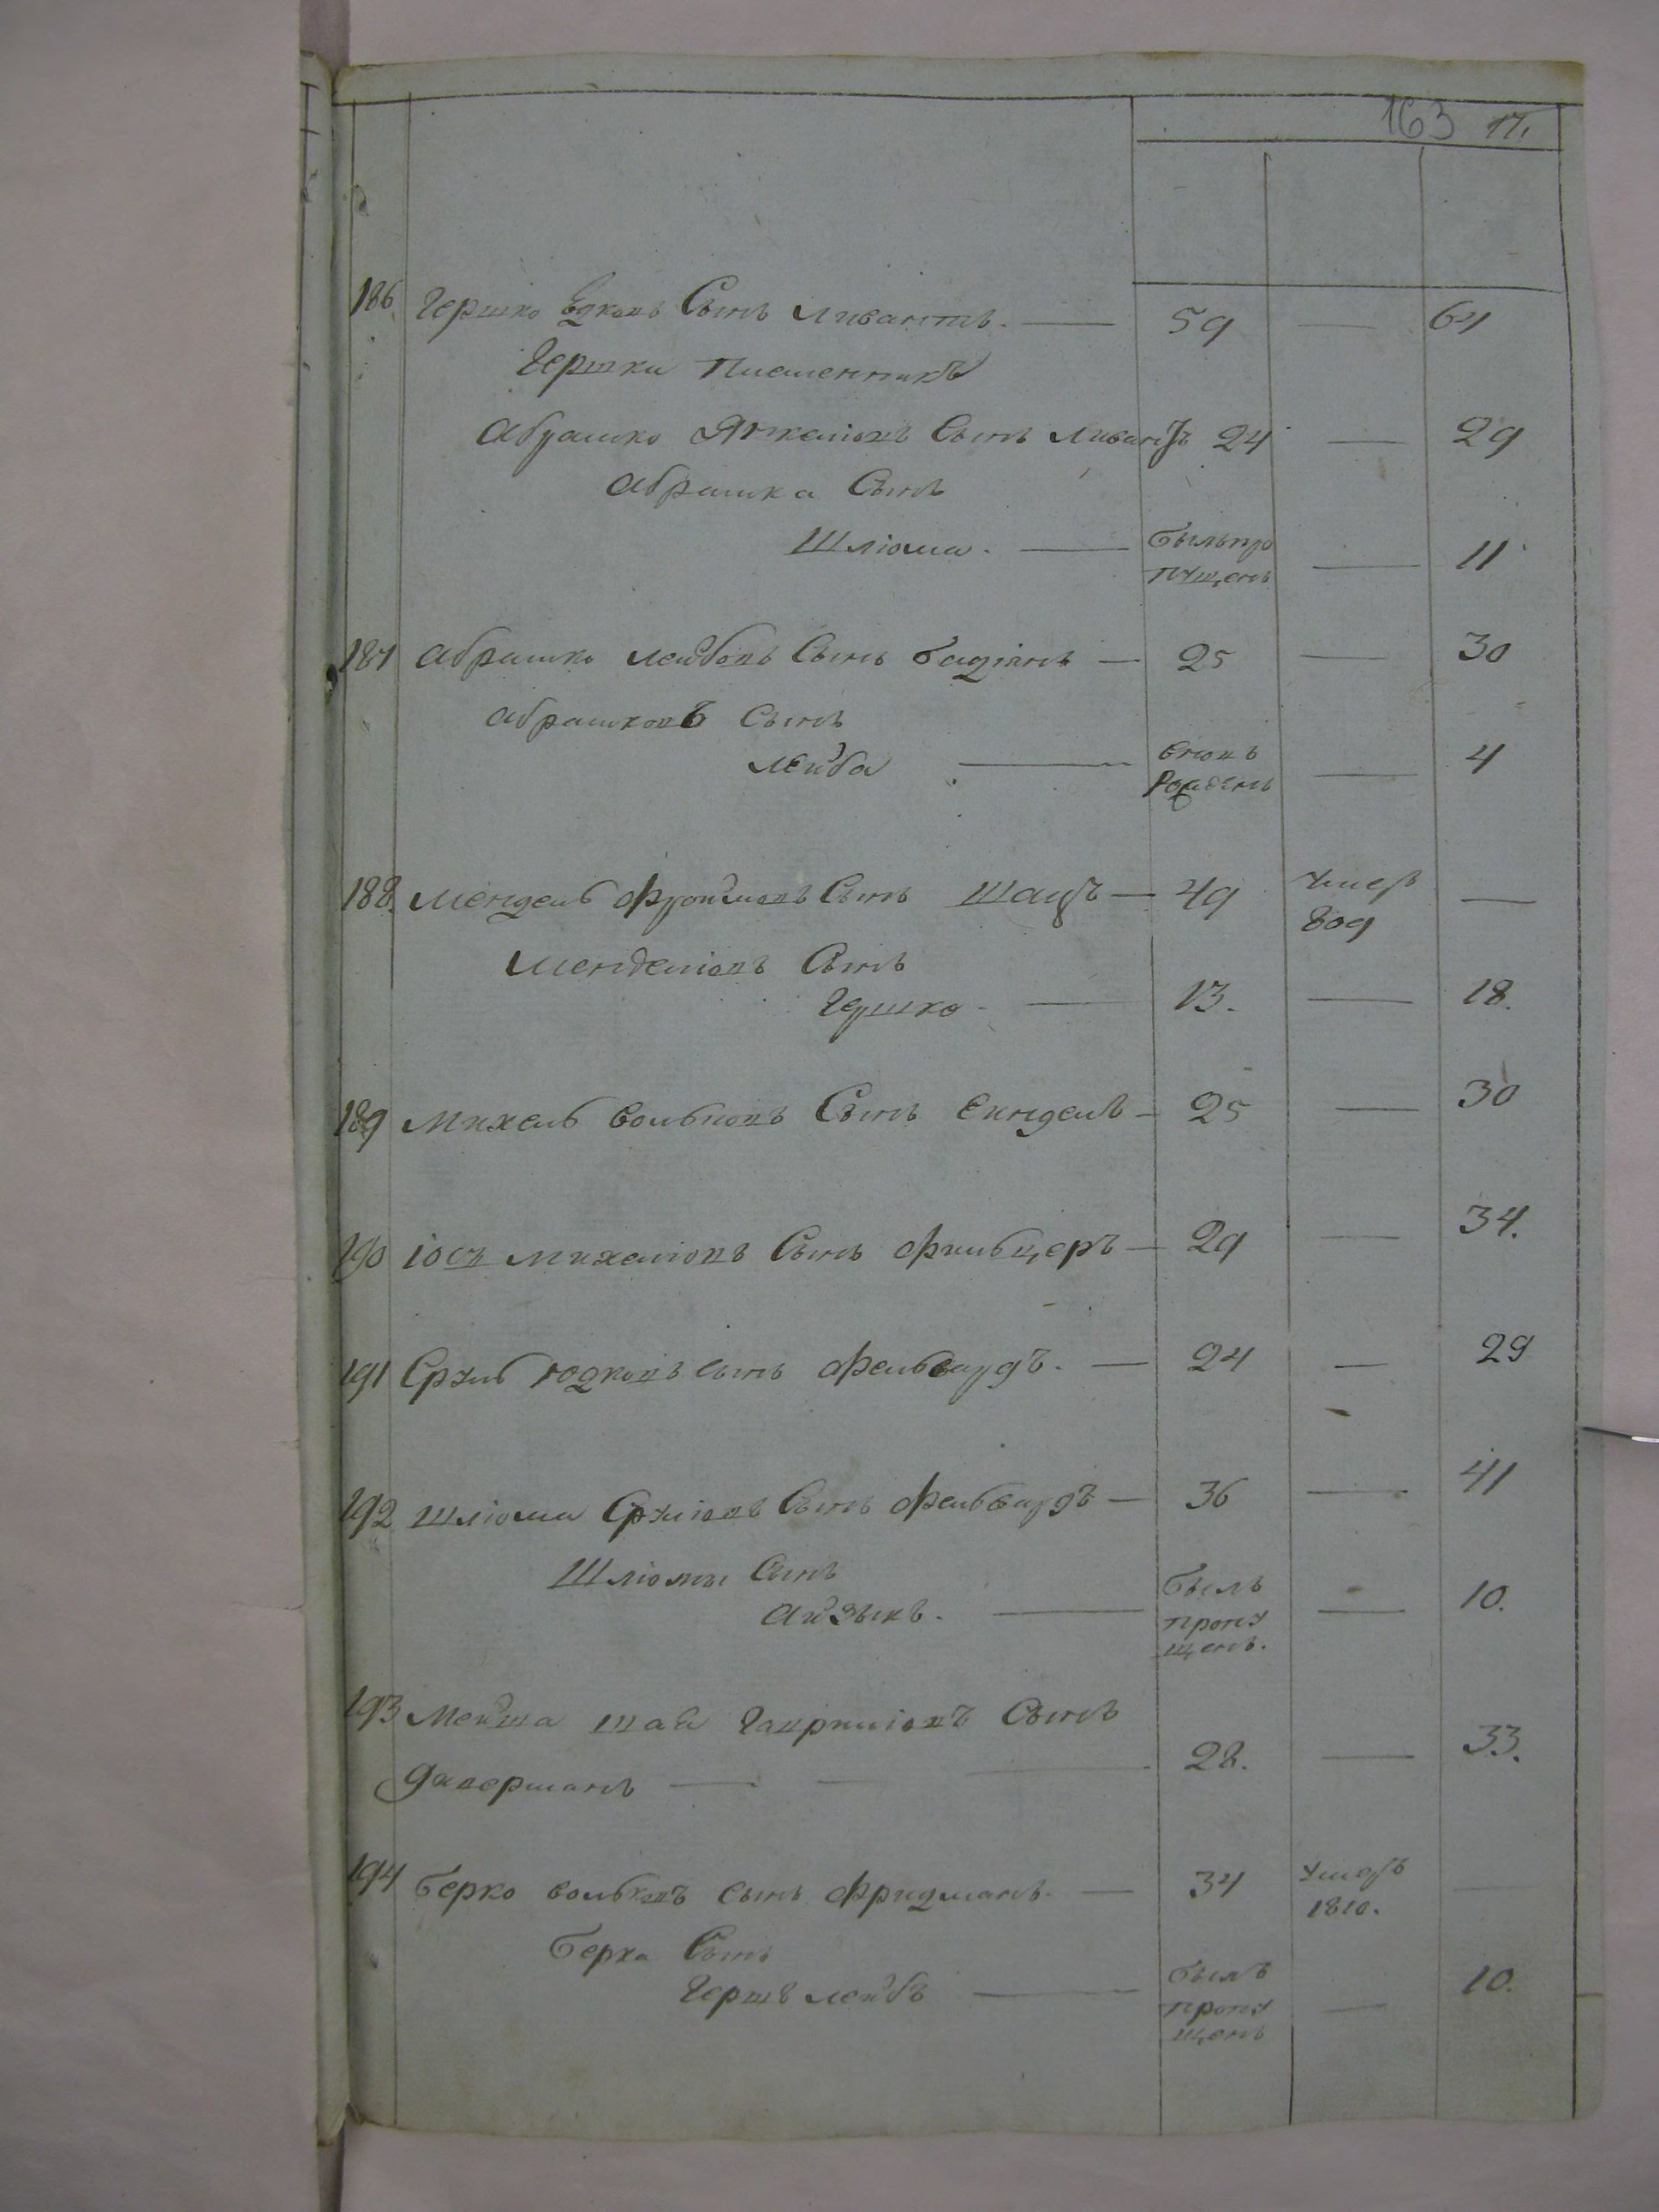 163 17.
186. Гершко Сынъ Ливантъ. — 59 — 64
Гершки Племенникъ
Абрашко Янкеліовъ Сынъ Ливантъ 24 — 29
Абрашка Сынъ
Шліома. — былъ про
пущенъ — 11
187 Абрашко Лейбовъ Сынъ — 25 — 30
Абрашковъ Сынъ
Лейба — вновь
рожденъ — 4
188. Мендель Фроимовъ Сынъ Шацъ — 49 умеръ —
809
Менделіовъ Сынъ
Гершко — 13. — 18.
189 Михель Вольковъ Сынъ — 25 — 30
190 Іосъ Михеліовъ Сынъ Фильцеръ — 29 — 34.
191 Срулъ Юдковъ сынъ Фельбардъ. — 24 — 29
192 Шліома Сруліовъ Сынъ Фельбардъ — 36 — 41
Шліомы Сынъ
Айзыкъ. — былъ
пропу
щенъ. — 10.
193 Мейша Гавриліовъ Сынъ
— 28. — 33.
194 Берко Вольковъ сынъ Фридманъ. — 34 умеръ —
1810.
Берка Сынъ
Гершъ Лейбъ — былъ
пропу
щенъ — 10.